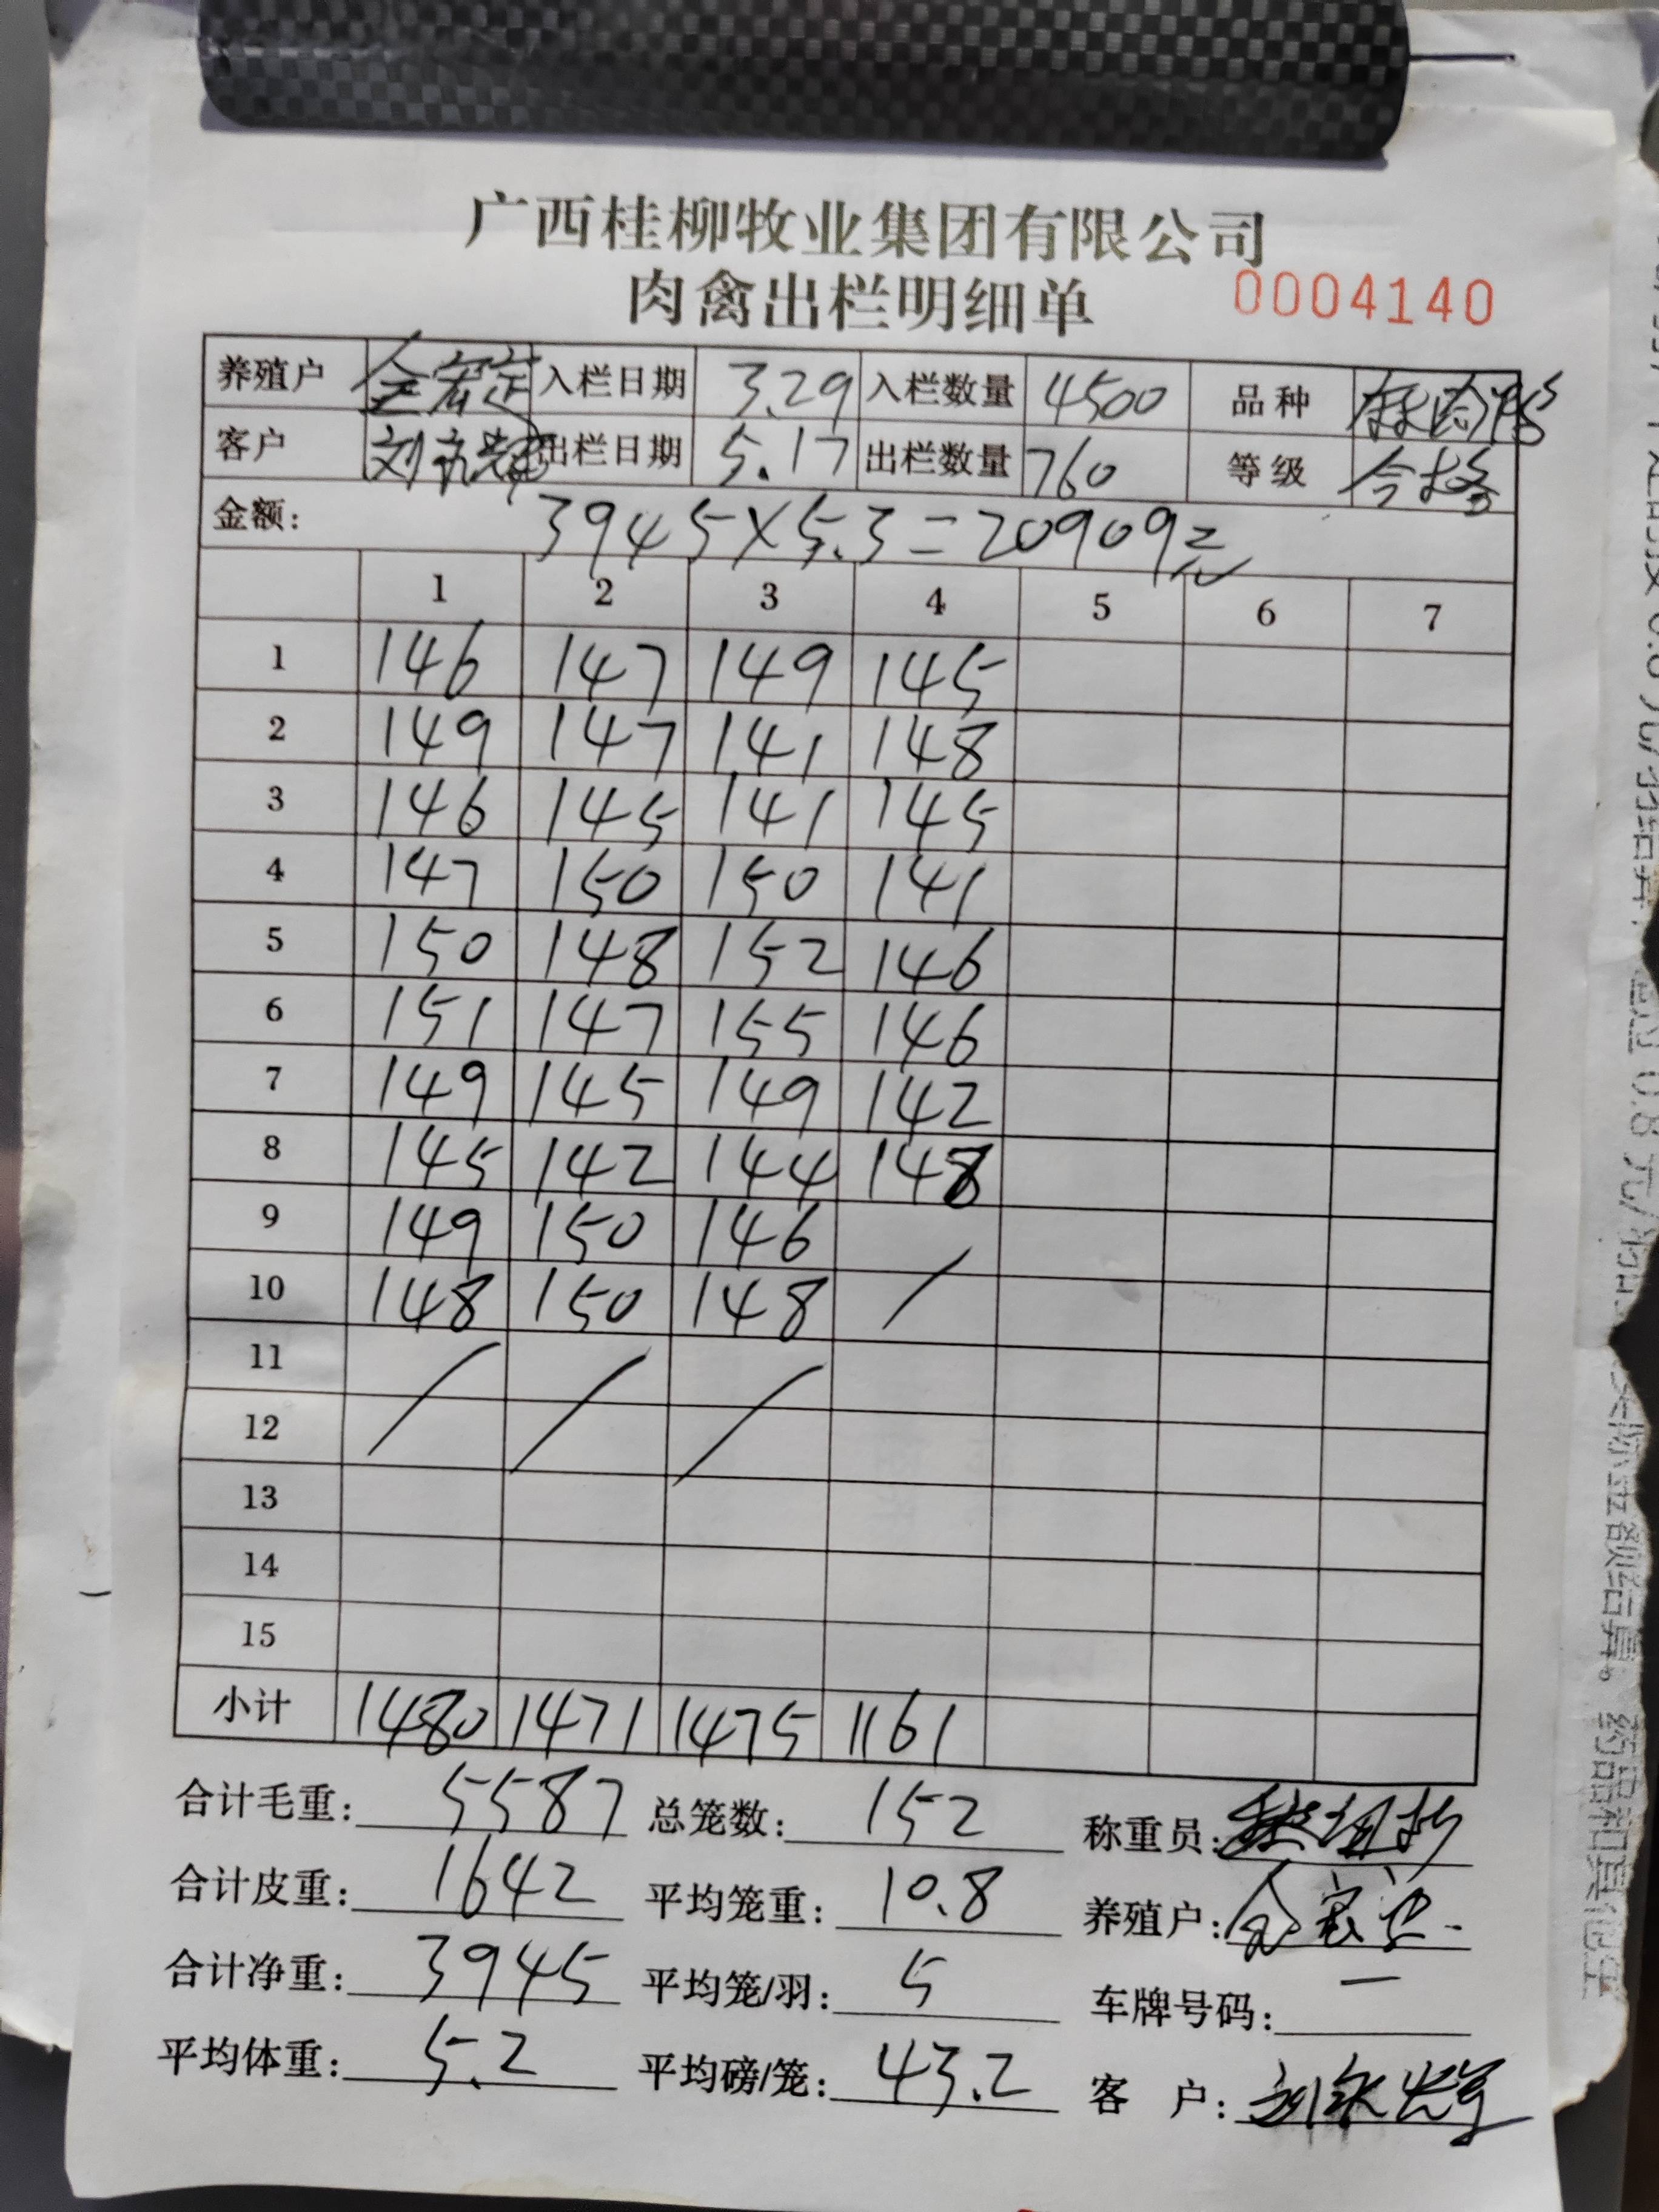 广西桂柳牧业集团有限公司
肉禽出栏明细单 0004140
养殖户 入栏日期 3.29 入栏数量 4500 品种
客户 出栏日期 5.17 出栏数量 760 等级 合格
金额: 3945×5.3=20909元
1 2 3 4 5 6 7
1 146 147 149 145
2 149 147 141 148
3 146 145 141 145
4 147 150 150 141
5 150 148 152 146
6 151 147 155 146
7 149 145 149 142
8 145 142 144 148
9 149 150 146
10 148 150 148
11
12
13
14
15
小计 1480 1471 1475 1161
合计毛重: 5587 总笼数: 152 称重员:
合计皮重: 1642 平均笼重: 10.8 养殖户:
合计净重: 3945 平均笼/羽: 5 车牌号码: 一
平均体重: 5.2 平均磅/笼: 43.2 客户: